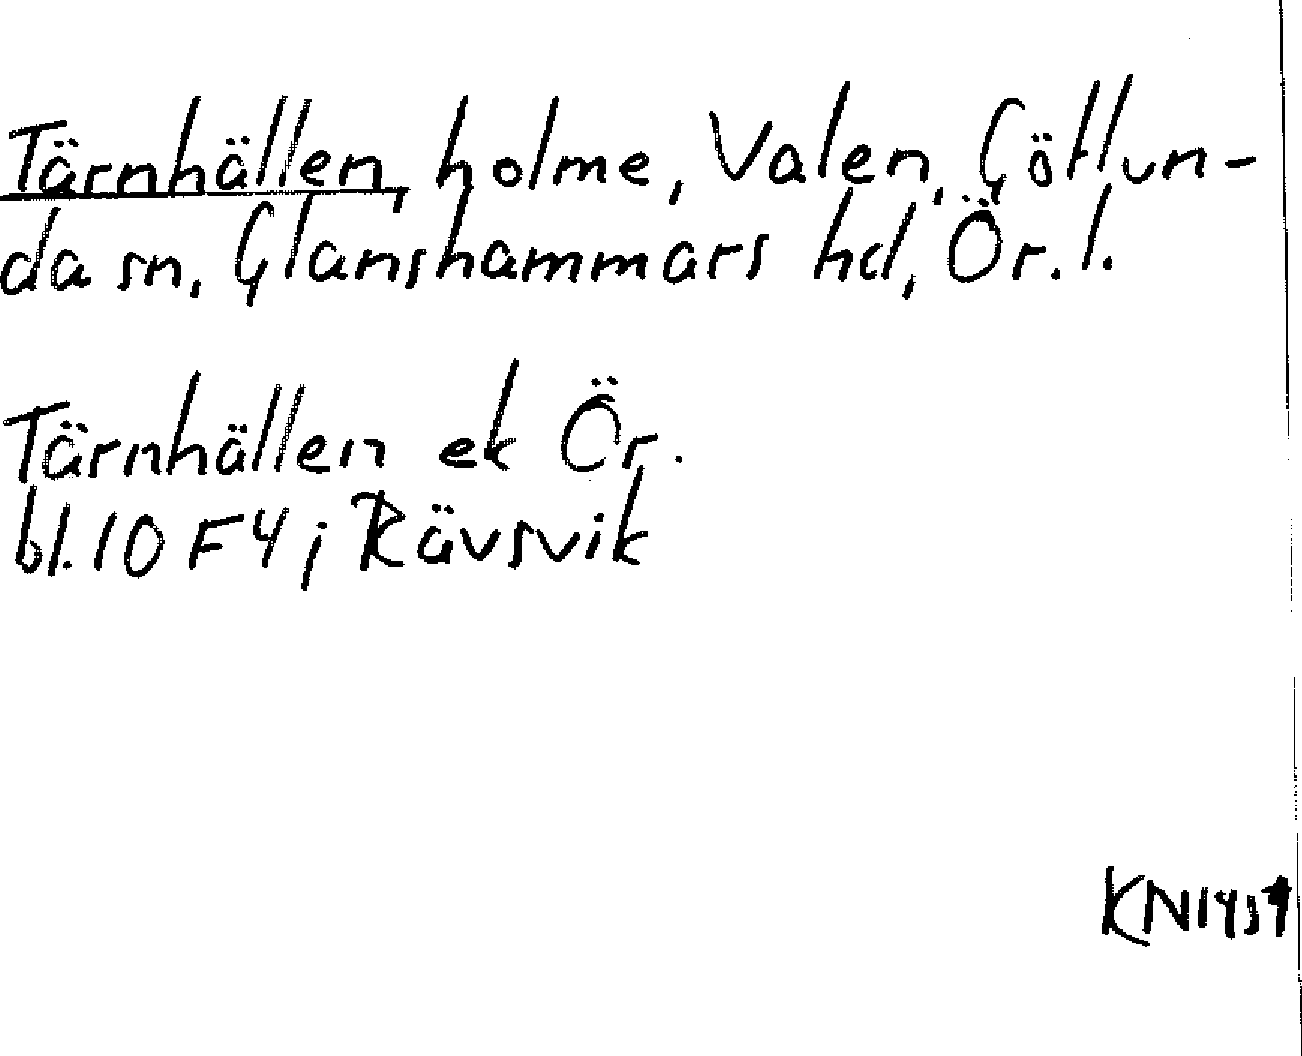 Tärnhällen, holme, Valen, Götlun-
da sn, Glanshammars hd, Ör. l.
Tärnhällen ek Ör.
bl. 10 F 4 ; Rävsvik